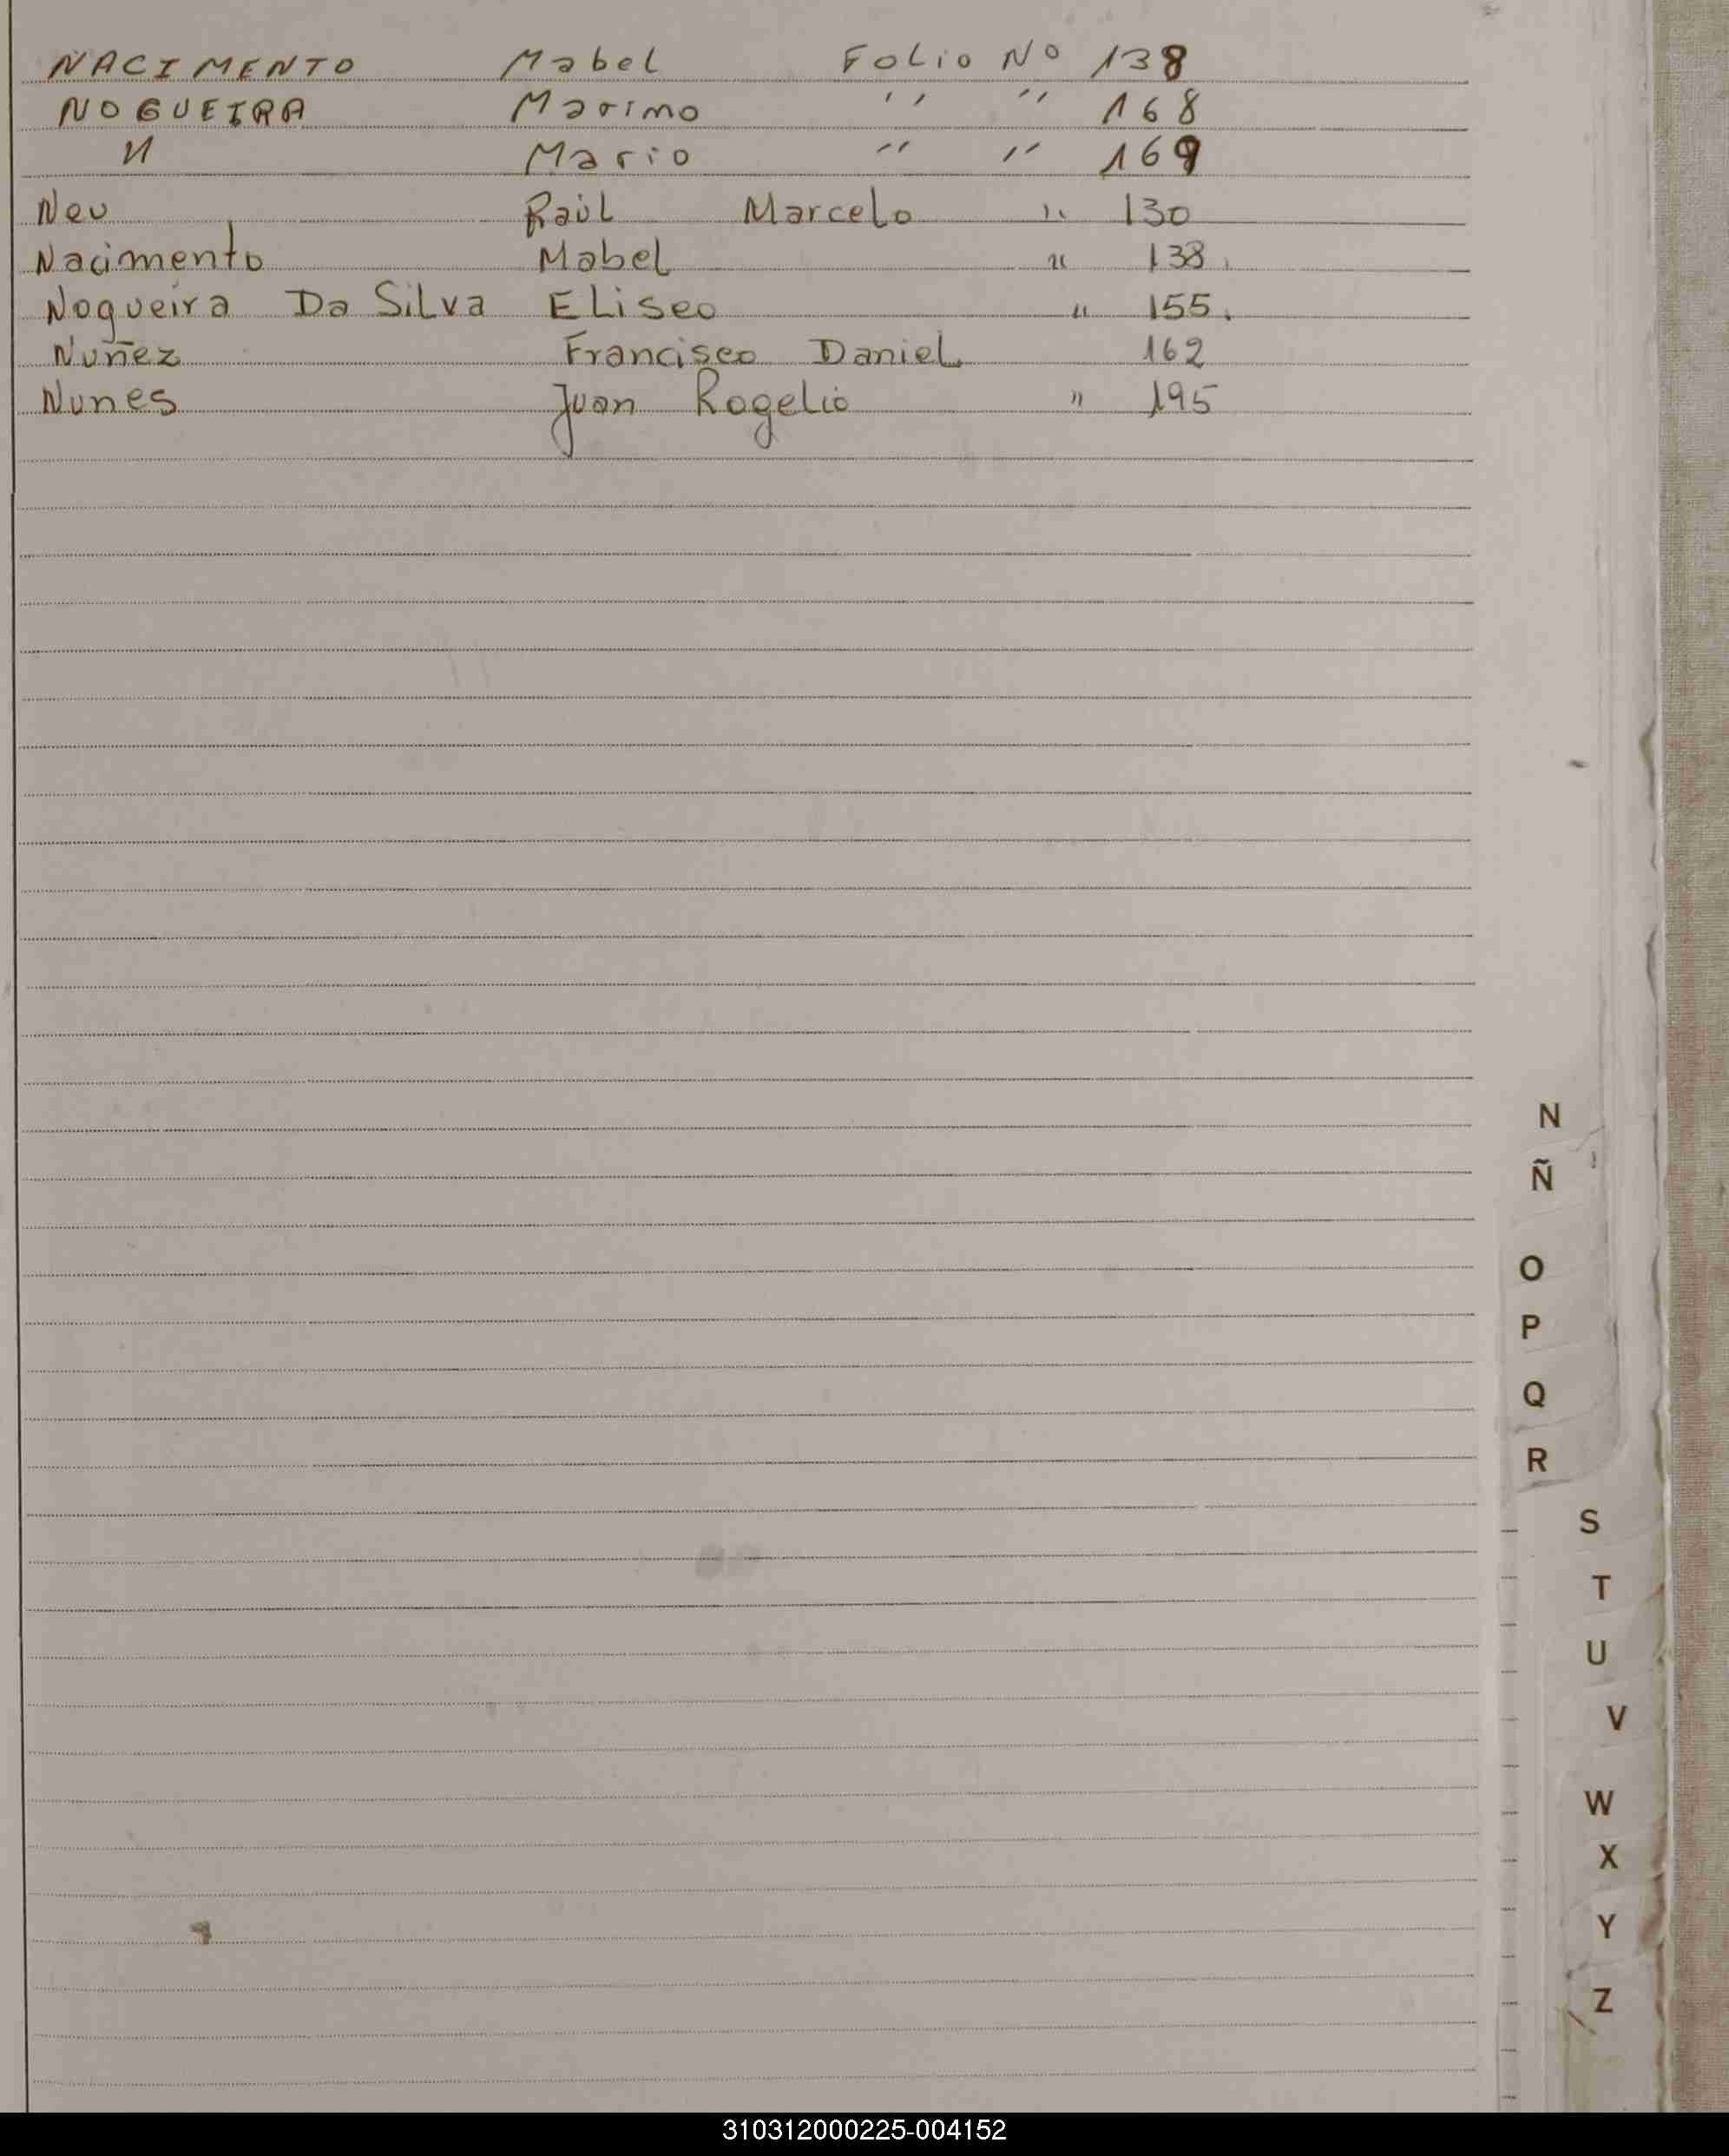 NACIMENTO Mabel Folio Nº 138
NOGUEIRA Marimo " " 168
" Mario " " 169
Neu Raúl Marcelo " 130
Nacimento Mabel " 138.
Nogueira Da Silva Eliseo " 155.
Nuñez Francisco Daniel 162
Nunes Juan Rogelio " 195
N
Ñ
O
P
Q
R
S
T
U
V
W
X
Y
Z
310312000225-004152